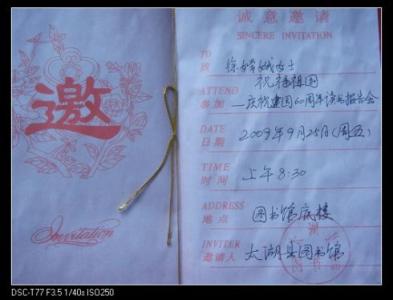 邀
Invitation
诚意邀请
SINCERE INVITATION
TO
致
女士
祝福祖国
ATTEND
参加
—庆祝建国60周年读书报告会
DATE
日期
2009年9月25日(周五)
TIME
时间
上午8:30
ADDRESS
地点
图书馆底楼
INVITER
邀请人
太湖县图书馆
DSC-T77 F3.5 1/40s ISO250